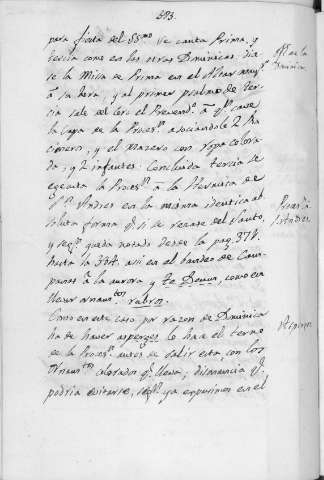 593.
para fiesta del SS.mo se canta Prima, y
tercia como en los otros Dominicas, di
se la Misa de Prima en el Altar mayor
à su hora, y al primer psalmo de Ter
cia sale del Coro el Prevend.o à q.n cave
la Capa de la Proces.n asociandole 2 Ra
cioneros, y el Macero con ropa colora
da, y 2 infantes: Concluida tercia se
egecuta la Proces.n à la Hermita de
S.n Andres en la misma identica ab
soluta forma q.e si se rezase del Santo,
y seg.n queda notado desde la pag. 374.
hasta la 384. asi en el bandeo de Cam
panas à la aurora y Te Deum, como en
llevar ornam.tos rubros.
Como en este caso por razon de Dominica
ha de haver asperges lo hará el terno
de la Proces.n antes de salir esta con los
Ornam.tos colorados q.e lleva; disonancia q.e
podria evitarse, seg.n ya expusimos en el
Proces.n à
S. Andres.
Asperges